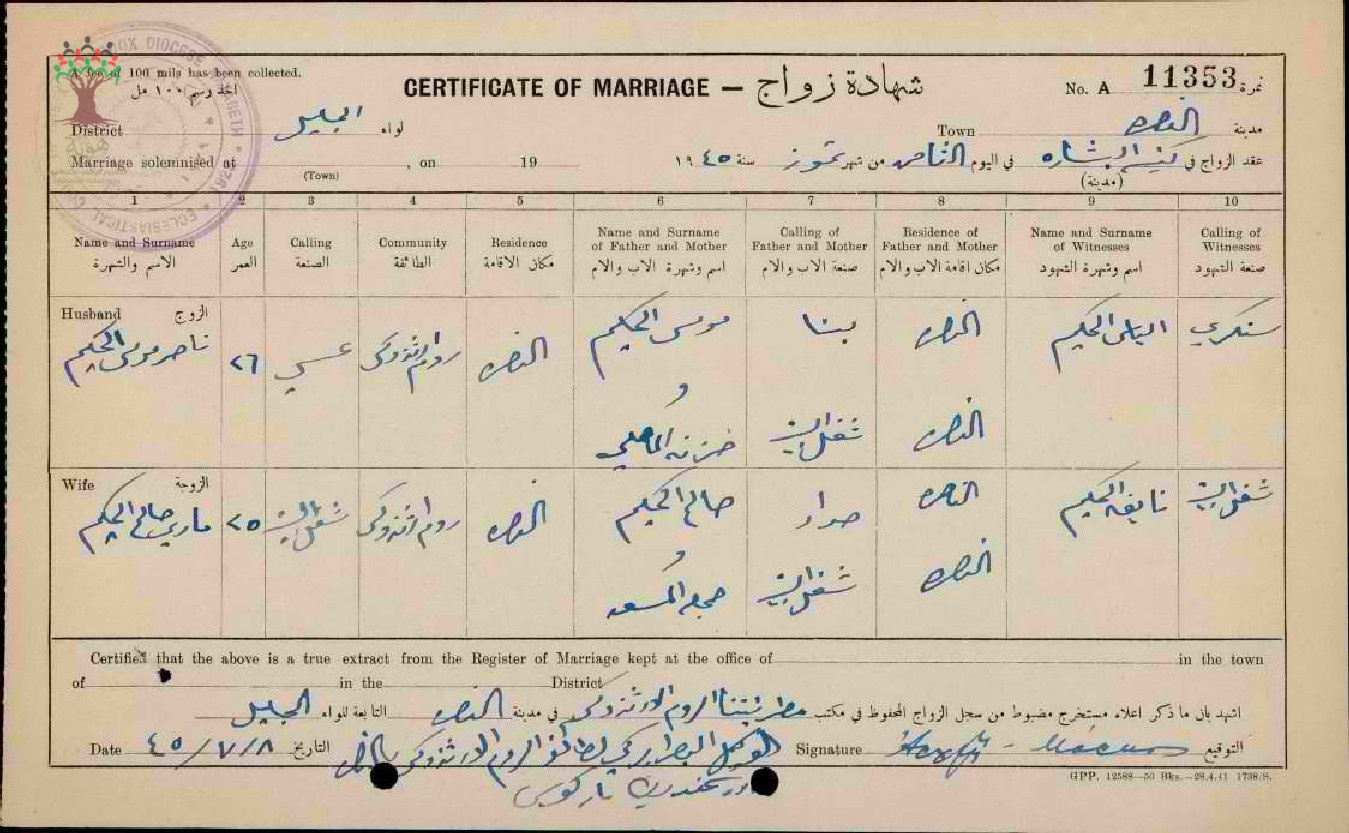 A fee of 100 mils has been collected.
اخذ رسم ١٠٠ مل
CERTIFICATE OF MARRIAGE — شهادة زواج
No. A 11353 نمرة
District الجليل لواء
Town الناصره مدينة
Marriage solemnised at , on 19
(Town)
عقد الزواج في كنيسة البشاره في اليوم الثامن من شهر تموز سنة ١٩٤٥
(مدينة)
1 2 3 4 5 6 7 8 9 10
Name and Surname Age Calling Community Residence Name and Surname of Father and Mother Calling of Father and Mother Residence of Father and Mother Name and Surname of Witnesses Calling of Witnesses
الاسم والشهرة العمر الصنعة الطائفة مكان الاقامة اسم وشهرة الاب والام صنعة الاب والام مكان اقامة الاب والام اسم وشهرة الشهود صنعة الشهود
Husband الزوج
ناصر موسى الحكيم ٢٦ روم ارثوذكس الناصره موسى الحكيم بنا الناصره الياس الحكيم سنكري
و
شغل البيت الناصره
Wife الزوجة
ماري صالح الحكيم ٢٥ شغل البيت روم ارثوذكس الناصره صالح الحكيم حداد الناصره نايفه الحكيم شغل البيت
و
شغل البيت الناصره
Certified that the above is a true extract from the Register of Marriage kept at the office of in the town
of in the District
اشهد بان ما ذكر اعلاه مستخرج مضبوط من سجل الزواج المحفوظ في مكتب مطرانية الروم الارثوذكس في مدينة الناصره التابعة للواء الجليل
Date ٤٥/٧/٨ التاريخ
Signature التوقيع
الروم الارثوذكس
GPP. 12588—50 Bks.—28.4.41 1738/S.